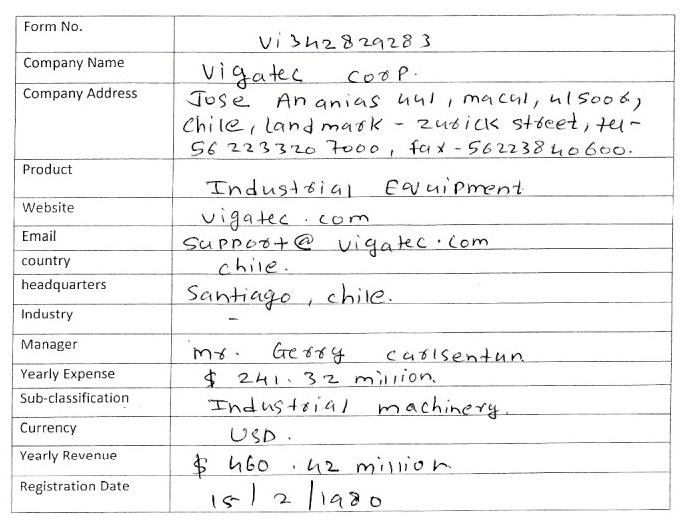 Form No. Vi342829283
Company Name Vigatec corp.
Company Address Jose Ananias 441, macul, 415006,
Chile, landmark - zurick street, tel-
56 223320 7000, fax - 56223840600.
Product Industrial Equipment
Website vigatec.com
Email support@vigatec.com
country chile.
headquarters Santiago, chile.
Industry -
Manager mr. Gerry carlsentun
Yearly Expense $ 241.32 million.
Sub-classification Industrial machinery.
Currency USD.
Yearly Revenue $ 460.42 million
Registration Date 15/2/1980